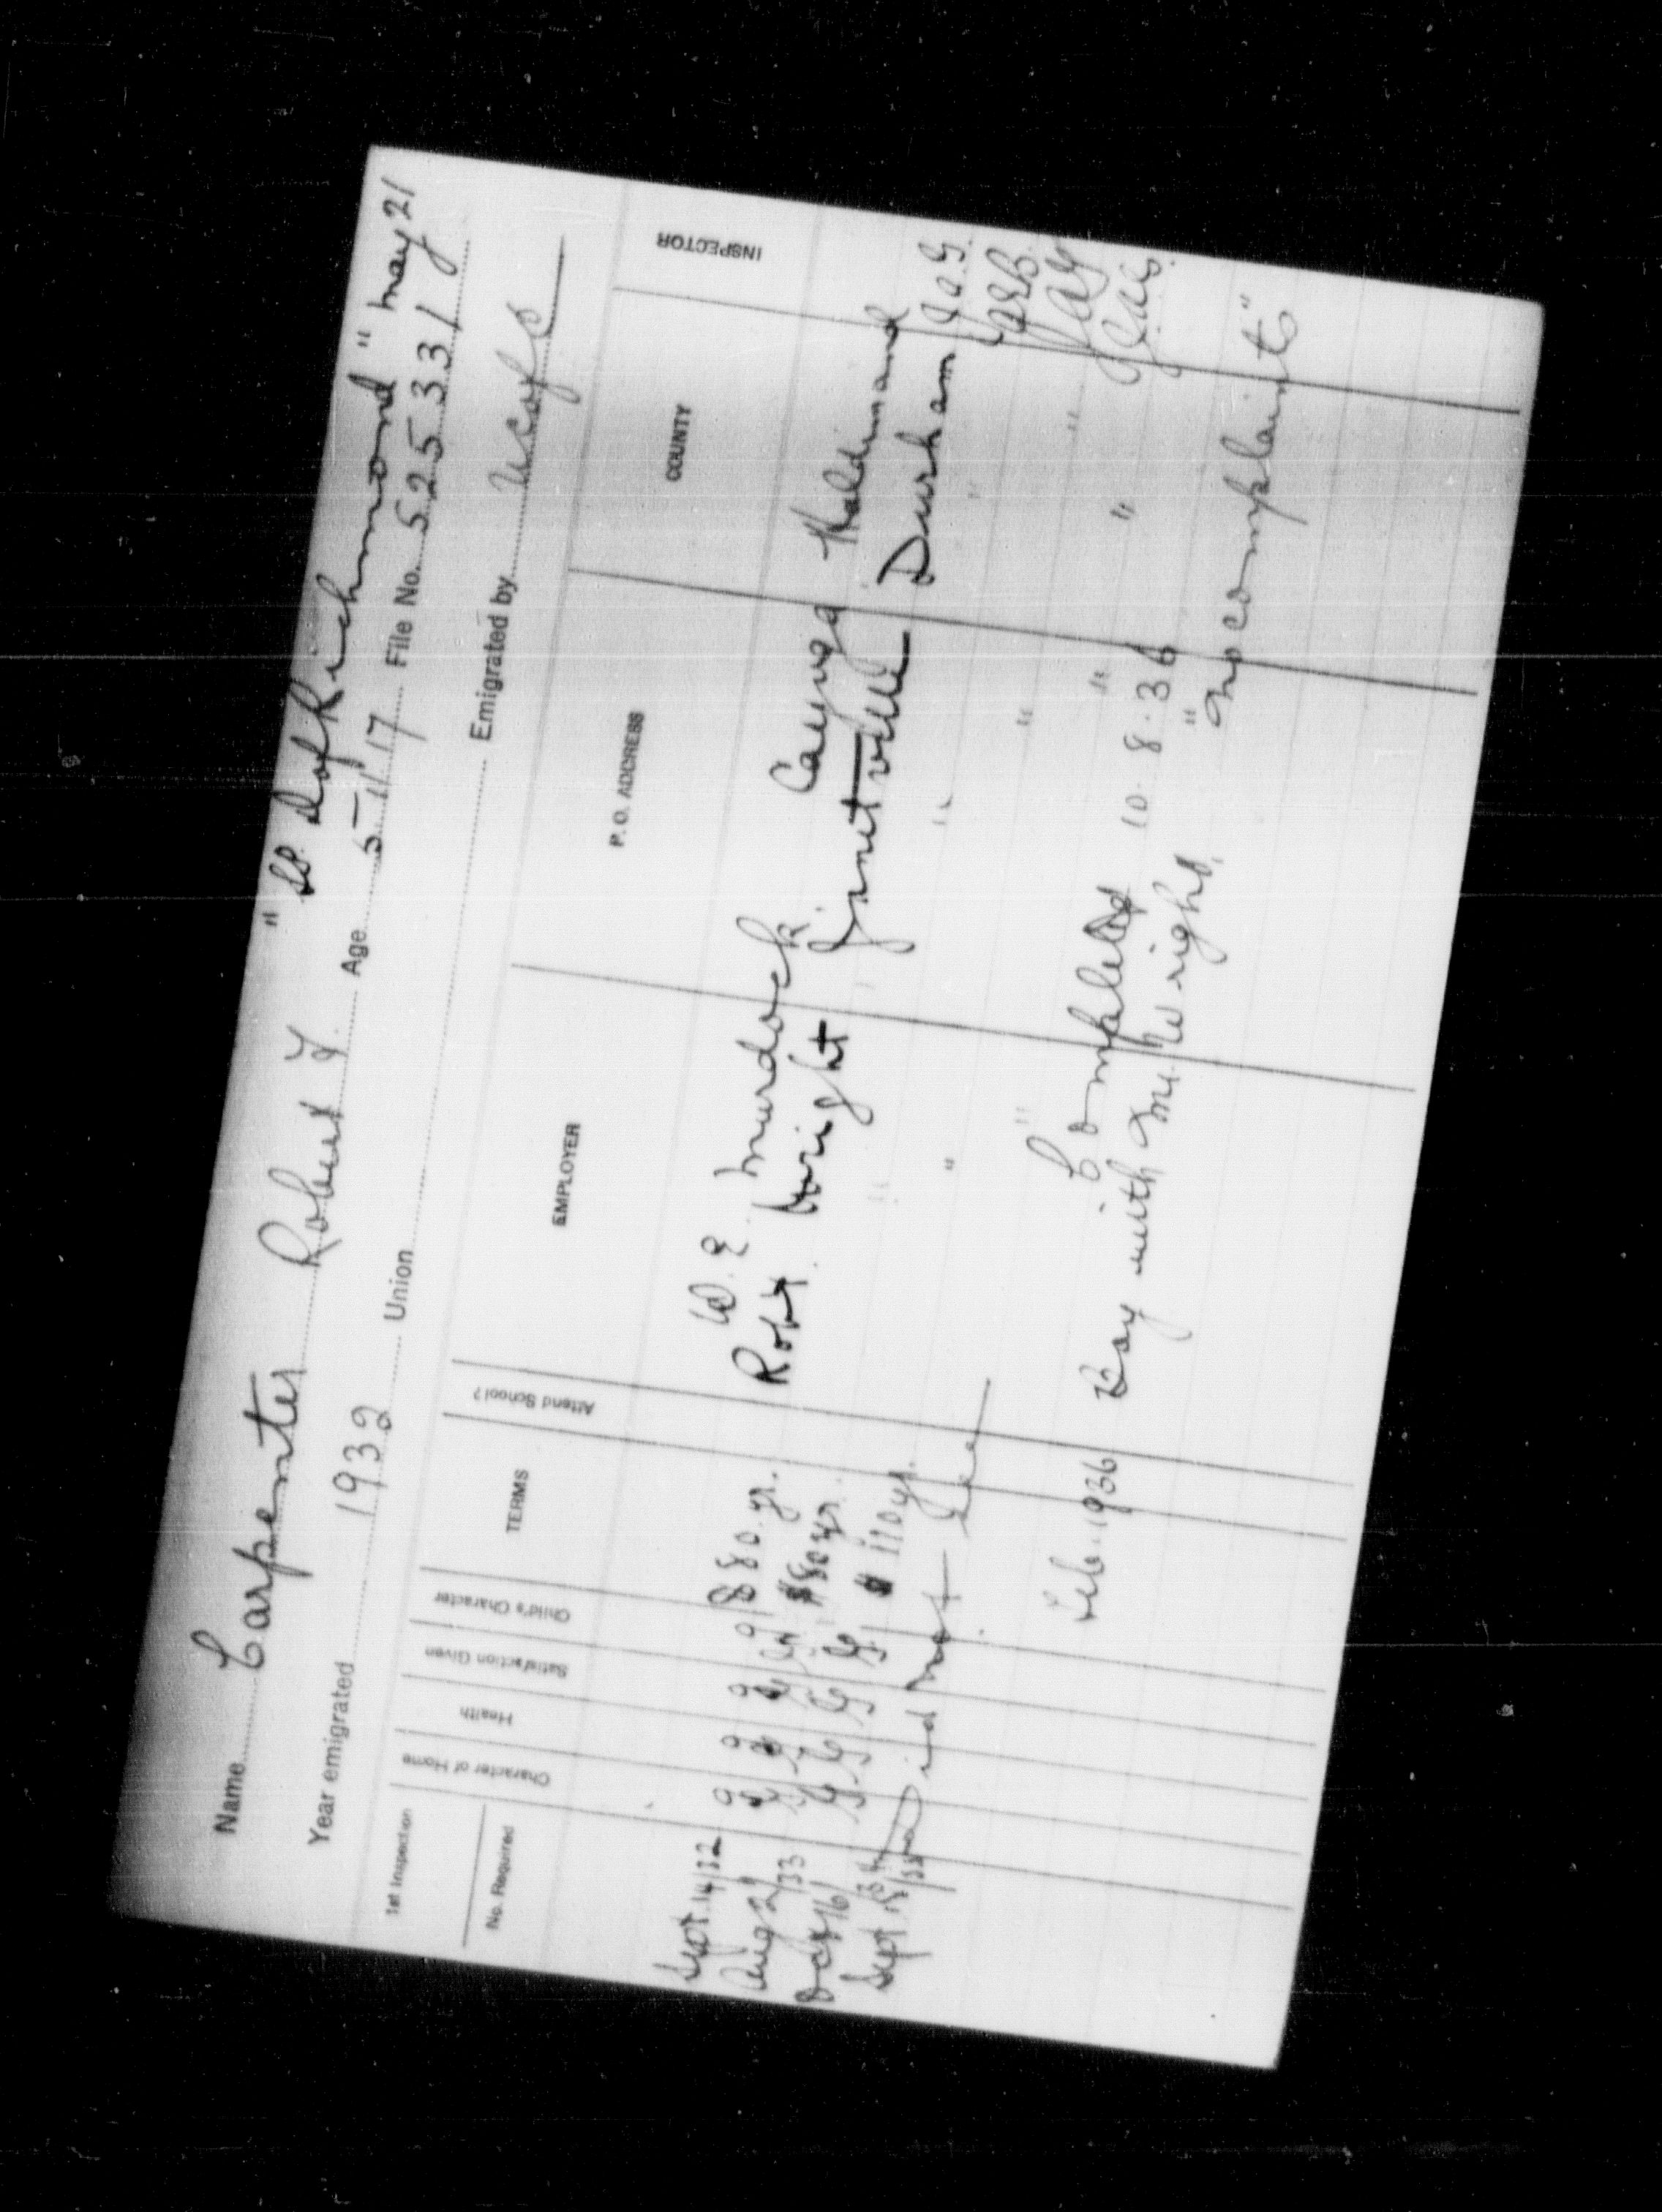 " SS. D of Richmond " May 21
Name Carpenter Robert F. Age 5-11/17 File No. 525331
Year emigrated 1932 Union Emigrated by U C of C
1st Inspection
No. Required
Character of Home
Health
Satisfaction Given
Child's Character
TERMS
Attend School?
EMPLOYER
P. O. ADDRESS
COUNTY
INSPECTOR
Sept. 14/32 g g g g $80 yr. W. E. Murdock Cayuga Haldimand
Aug 2/33 $80 yr. Robt. Wright Janetville Durham
Oct 16/34 G G G G $110 yr. " " "
Sept Did not see " " "
Completed 10.8.36
Feb. 1936 Boy with Mr. Wright. "No complaints"